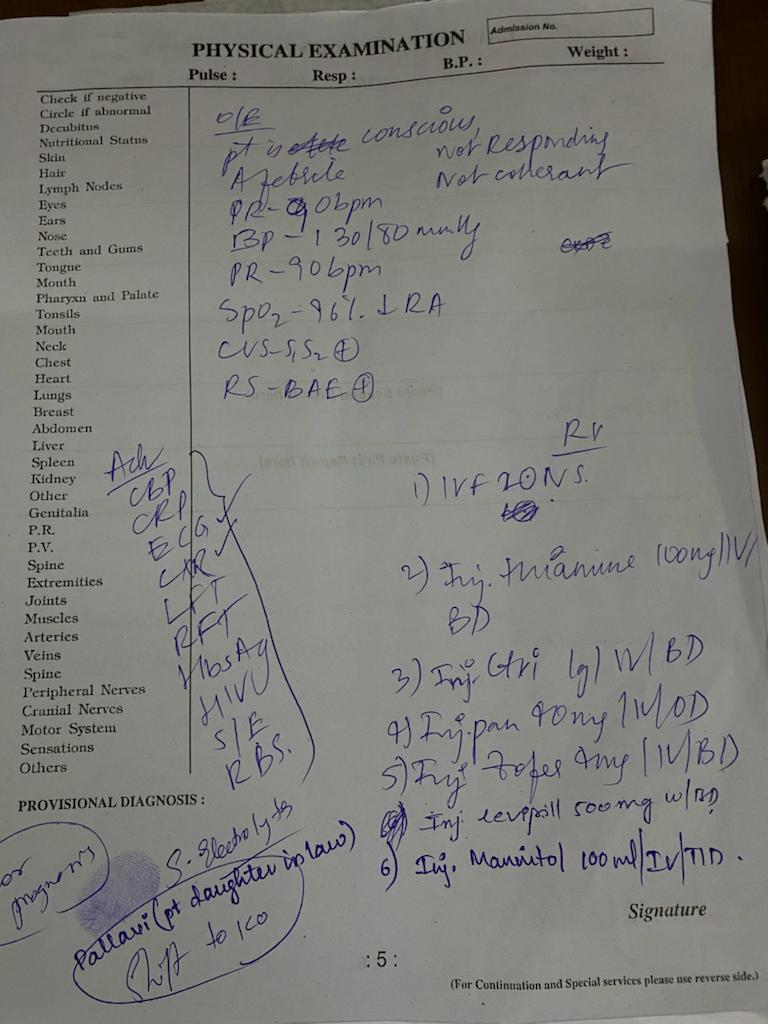 Admission No.
PHYSICAL EXAMINATION
Pulse : Resp : B.P. : Weight :
Check if negative
Circle if abnormal
Decubitus
Nutritional Status
Skin
Hair
Lymph Nodes
Eyes
Ears
Nose
Teeth and Gums
Tongue
Mouth
Pharyxn and Palate
Tonsils
Mouth
Neck
Chest
Heart
Lungs
Breast
Abdomen
Liver
Spleen
Kidney
Other
Genitalia
P.R.
P.V.
Spine
Extremities
Joints
Muscles
Arteries
Veins
Spine
Peripheral Nerves
Cranial Nerves
Motor System
Sensations
Others
O/E
pt is conscious,
Not Responding
Afebrile
Not coherant
PR - 90bpm
BP - 130/80 mmHg
PR - 90bpm
SpO2 - 96% ↓ RA
CVS - S1S2 ⊕
RS - BAE ⊕
Adv
CBP
CRP
ECG ✓
CXR ✓
LFT
RFT
HbsAg
HIV
S/E
RBS.
S. Electrolytes
1) IVF NS.
2) Inj. thiamine 100mg/IV/
BD
3) Inj. 1g/IV/BD
4) Inj. pan 40mg/IV/OD
5) Inj Zofer 4mg/IV/BD
Inj levepsill 500mg IV/BD
6) Inj. Mannitol 100ml/IV/TID.
PROVISIONAL DIAGNOSIS :
prognosis
Pallavi (pt daughter in law)
Shift to ICU
Signature
: 5 :
(For Continuation and Special services please use reverse side.)